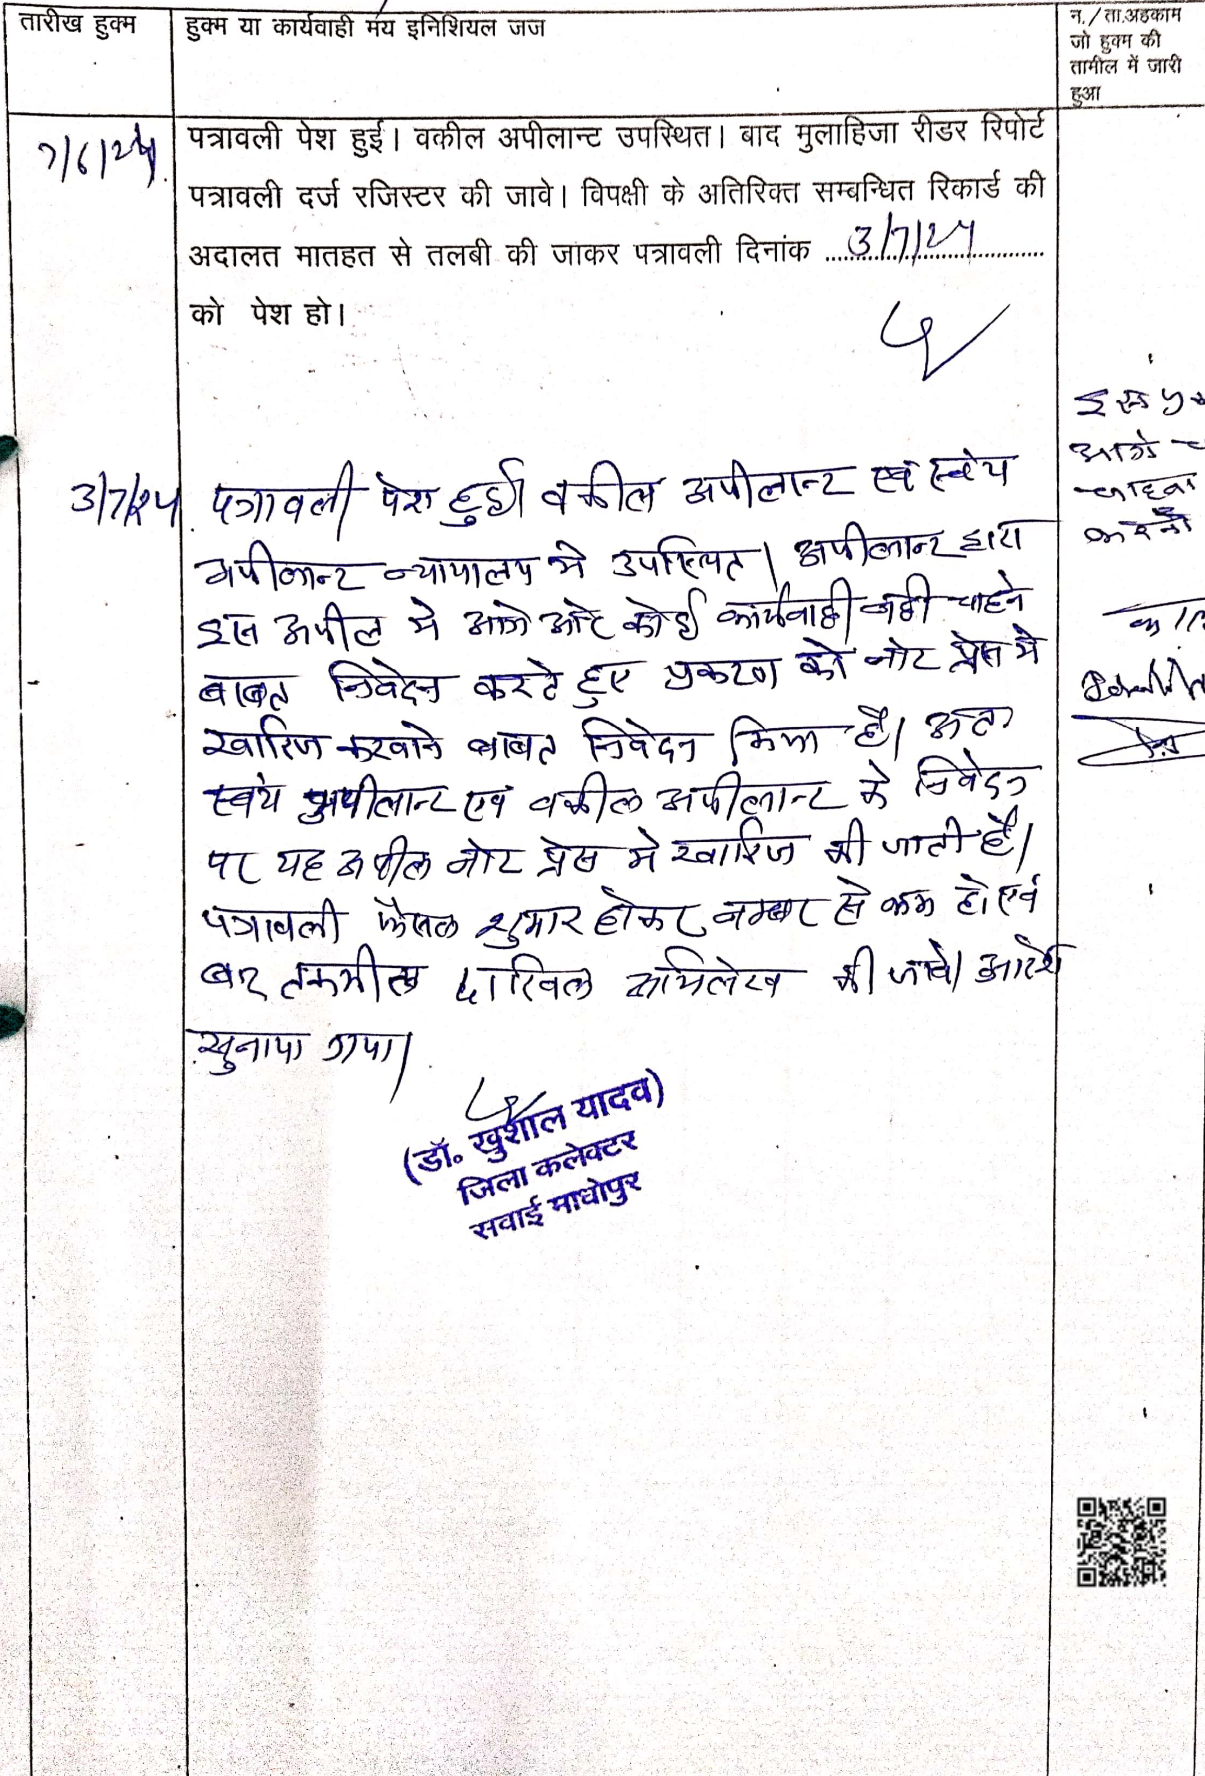 तारीख हुक्म
हुक्म या कार्यवाही मय इनिशियल जज
न./ता.अहकाम
जो हुक्म की
तामील में जारी
हुआ
7/6/24
पत्रावली पेश हुई। वकील अपीलान्ट उपस्थित। बाद मुलाहिजा रीडर रिपोर्ट
पत्रावली दर्ज रजिस्टर की जावे। विपक्षी के अतिरिक्त सम्बन्धित रिकार्ड की
अदालत मातहत से तलबी की जाकर पत्रावली दिनांक 3/7/24
को पेश हो।
3/7/24
पत्रावली पेश हुई। वकील अपीलान्ट एवं स्वंय
अपीलान्ट न्यायालय मे उपस्थित। अपीलान्ट द्वारा
इस अपील मे आगे और कोई कार्यवाही नही चाहने
बाबत निवेदन करते हुए प्रकरण को नोट प्रेस मे
खारिज करवाने बाबत निवेदन किया है। अतः
स्वंय अपीलान्ट एवं वकील अपीलान्ट के निवेदन
पर यह अपील नोट प्रेस मे खारिज की जाती है।
पत्रावली फैसल शुमार होकर नम्बर से कम हो एवं
बाद तकमील दाखिल अभिलेख की जावे। आदेश
सुनाया गया।
(डॉ. खुशाल यादव)
जिला कलेक्टर
सवाई माधोपुर
इस
आगे
चाहता
करनी